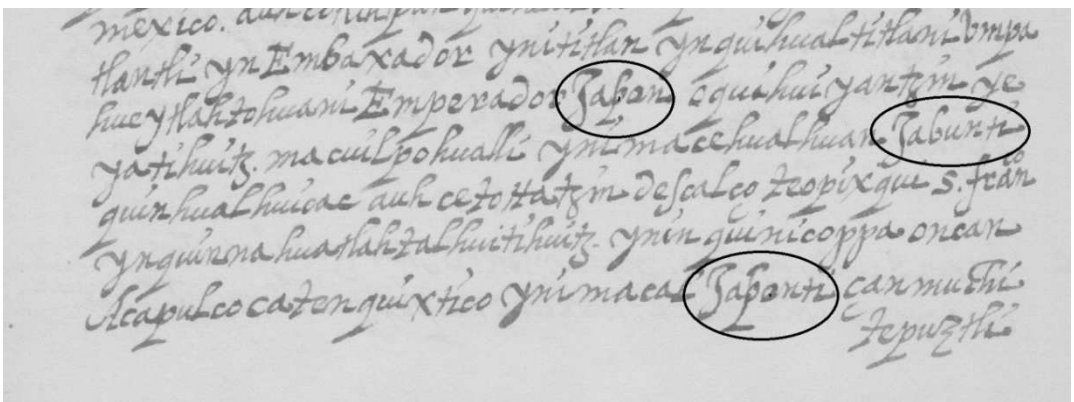 mexico. auh
tlantli yn Embaxador yn ititlan yn quihualtitlani ompa
huey tlahtohuani Emperador Japon oquihuiyantzin ye
yatihuitz. macuilpohualli yn imacehualhuan Jabonti
quinhualhuicac auh ce totatzin descalço teopixqui s. franco
yn quinnahuatlahtalhuitihuitz. ynin quinicoppa oncan
Acapulco catenquixtico yn imacal Japonti çan muchi
tepuztli